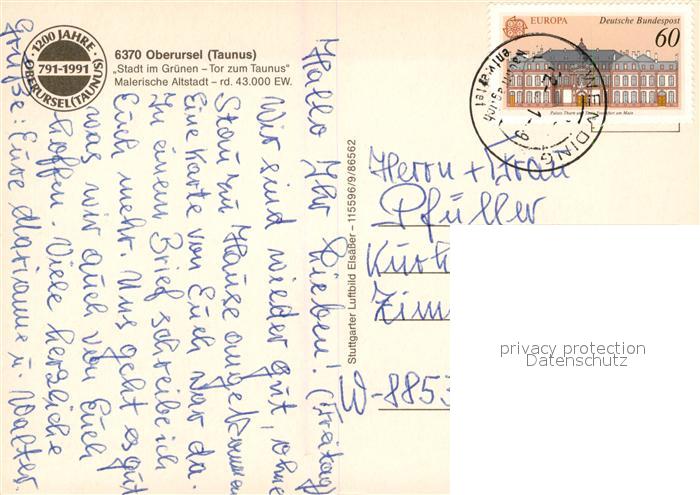 1200 JAHRE
791-1991
OBERURSEL (TAUNUS)
6370 Oberursel (Taunus)
„Stadt im Grünen – Tor zum Taunus“
Malerische Altstadt – rd. 43.000 EW.
Hallo Ihr Lieben! (Freitag)
Wir sind wieder gut, ohne
Stau zu Hause angekommen
Eine Karte von Euch war da.
In einem Brief schreibe ich
Euch mehr. Uns geht es gut
was wir auch von Euch
hoffen. Viele herzliche
Grüße: Eure Marianne u. Walter.
Stuttgarter Luftbild Elsäßer – 115596/9/86562
EUROPA
Deutsche Bundespost
60
Palais Thurn und Taxis, Frankfurt am Main
WEMDING
Herrn + Frau
Pfüller
Zim
W-885
privacy protection
Datenschutz